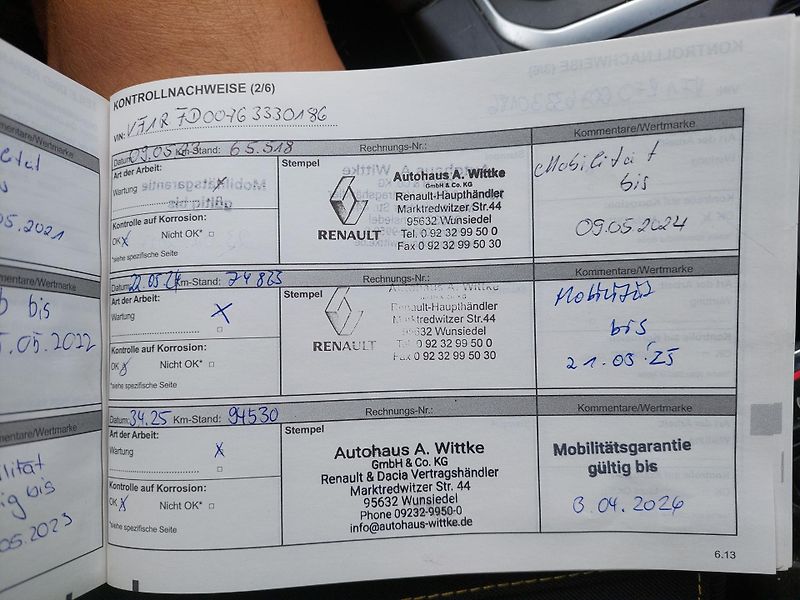 KONTROLLNACHWEISE (2/6)
VIN: VF1R7D00463330186
Datum: 09.05.23 Km-Stand: 65.518 Rechnungs-Nr.: Kommentare/Wertmarke
Art der Arbeit:
Wartung X
Kontrolle auf Korrosion:
OK X Nicht OK* □
*siehe spezifische Seite
Stempel
RENAULT
Autohaus A. Wittke
GmbH & Co. KG
Renault-Haupthändler
Marktredwitzer Str.44
95632 Wunsiedel
Tel. 0 92 32 99 50 0
Fax 0 92 32 99 50 30
Mobilität
bis
09.05.2024
Datum: 22.05.24 Km-Stand: 74 823 Rechnungs-Nr.: Kommentare/Wertmarke
Art der Arbeit:
Wartung X
□
Kontrolle auf Korrosion:
OK X Nicht OK* □
*siehe spezifische Seite
Stempel
RENAULT
Autohaus A. Wittke
Renault-Haupthändler
Marktredwitzer Str.44
95632 Wunsiedel
Tel. 0 92 32 99 50 0
Fax 0 92 32 99 50 30
Mobilität
bis
Datum: 3 4.25 Km-Stand: 94530 Rechnungs-Nr.: Kommentare/Wertmarke
Art der Arbeit:
Wartung X
□
Kontrolle auf Korrosion:
OK X Nicht OK* □
*siehe spezifische Seite
Stempel
Autohaus A. Wittke
GmbH & Co. KG
Renault & Dacia Vertragshändler
Marktredwitzer Str. 44
95632 Wunsiedel
Phone 09232-9950-0
info@autohaus-wittke.de
Mobilitätsgarantie
gültig bis
3.04.2026
6.13